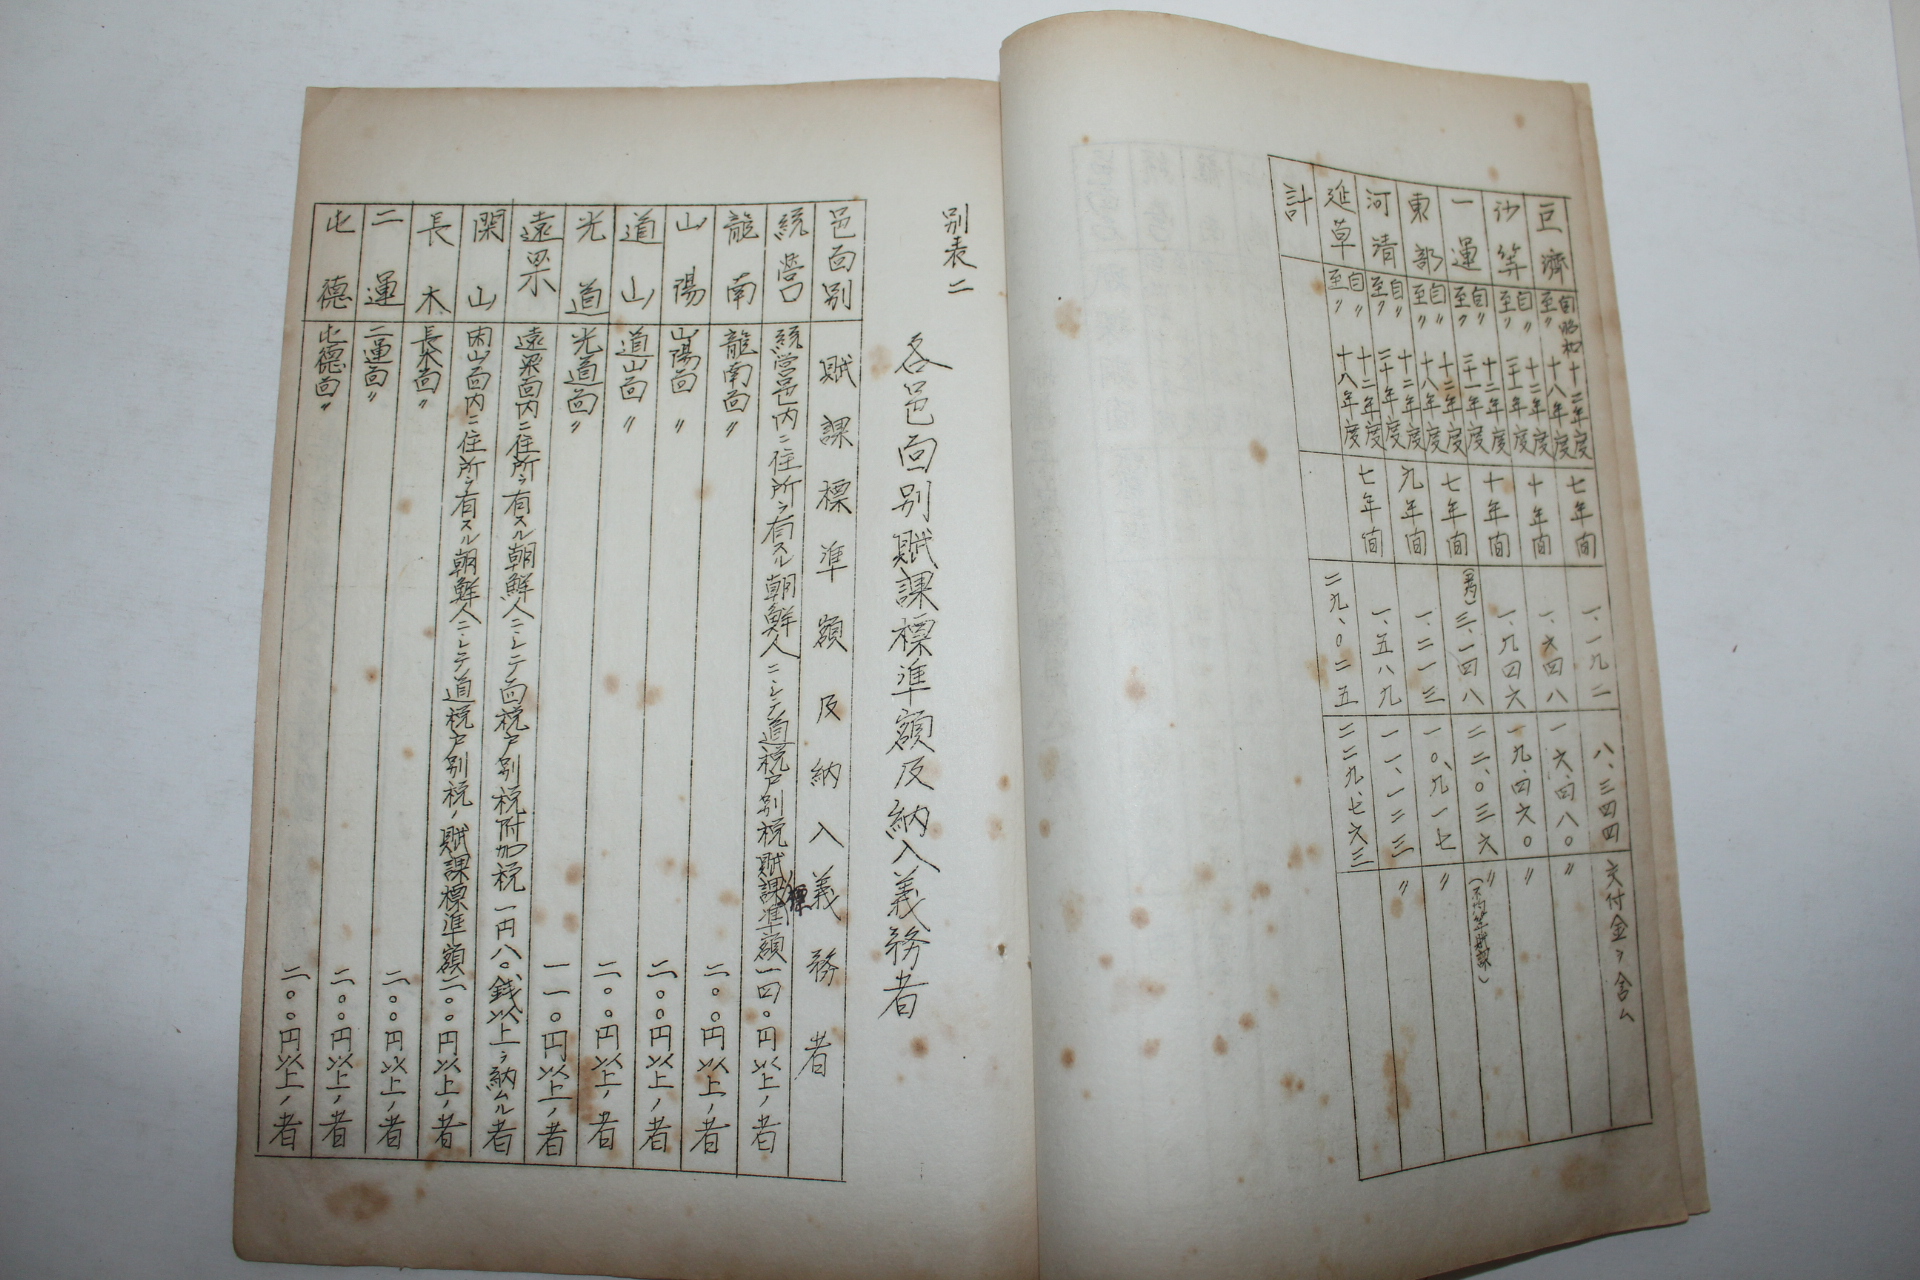 巨濟 自昭和十二年度 至〃十八年度 七年間 一、一九二 八、三四四 交付金ヲ含ム
沙等 自〃十二年度 至〃二十一年度 十年間 一、六四八 一六、四八〇 〃
一運 自〃十二年度 至〃二十一年度 十年間 一、九四六 一九、四六〇 〃
東部 自〃十二年度 至〃十八年度 七年間 三、一四八 二二、〇三六 〃
河清 自〃十二年度 至〃二十年度 九年間 一、二一三 一〇、九一七 〃
延草 自〃十二年度 至〃十八年度 七年間 一、五八九 一一、一二三 〃
計 二九、〇二五 二二九、七六三
別表二
各邑面別賦課標準額及納入義務者
邑面別 賦課標準額及納入義務者
統營 統営邑内ニ住所ヲ有スル朝鮮人ニシテ道税戸別税賦課標準額一四〇円以上ノ者
龍南 龍南面〃 二〇〇円以上ノ者
山陽 山陽面〃 二〇〇円以上ノ者
道山 道山面〃 二〇〇円以上ノ者
光道 光道面〃 一一〇円以上ノ者
遠梁 遠梁面内ニ住所ヲ有スル朝鮮人ニシテ面税戸別税附加税一円八〇銭以上ヲ納ムル者
閑山 閑山面内ニ住所ヲ有スル朝鮮人ニシテ道税戸別税ノ賦課標準額二〇〇円以上ノ者
長木 長木面〃 二〇〇円以上ノ者
二運 二運面〃 二〇〇円以上ノ者
屯德 屯德面〃 二〇〇円以上ノ者